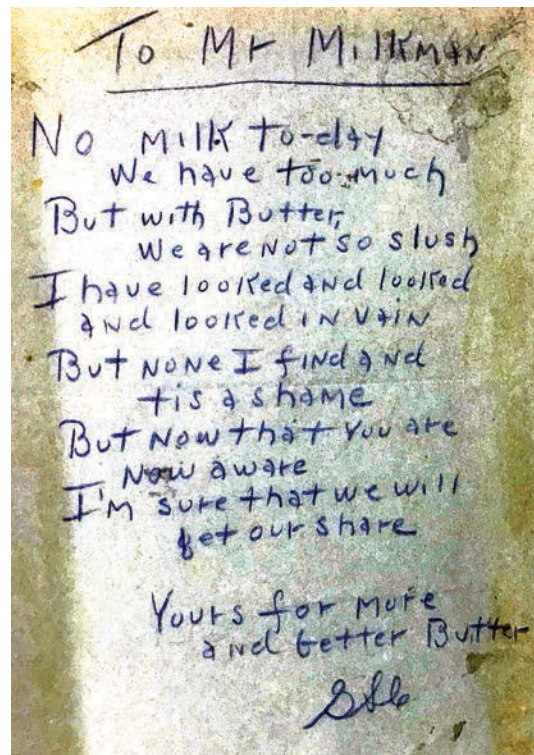 To Mr Milkman
No milk to-day
We have too much
But with Butter,
We are not so slush
I have looked and looked
and looked in vain
But none I find and
tis a shame
But now that you are
now aware
I'm sure that we will
get our share
Yours for more
and better Butter